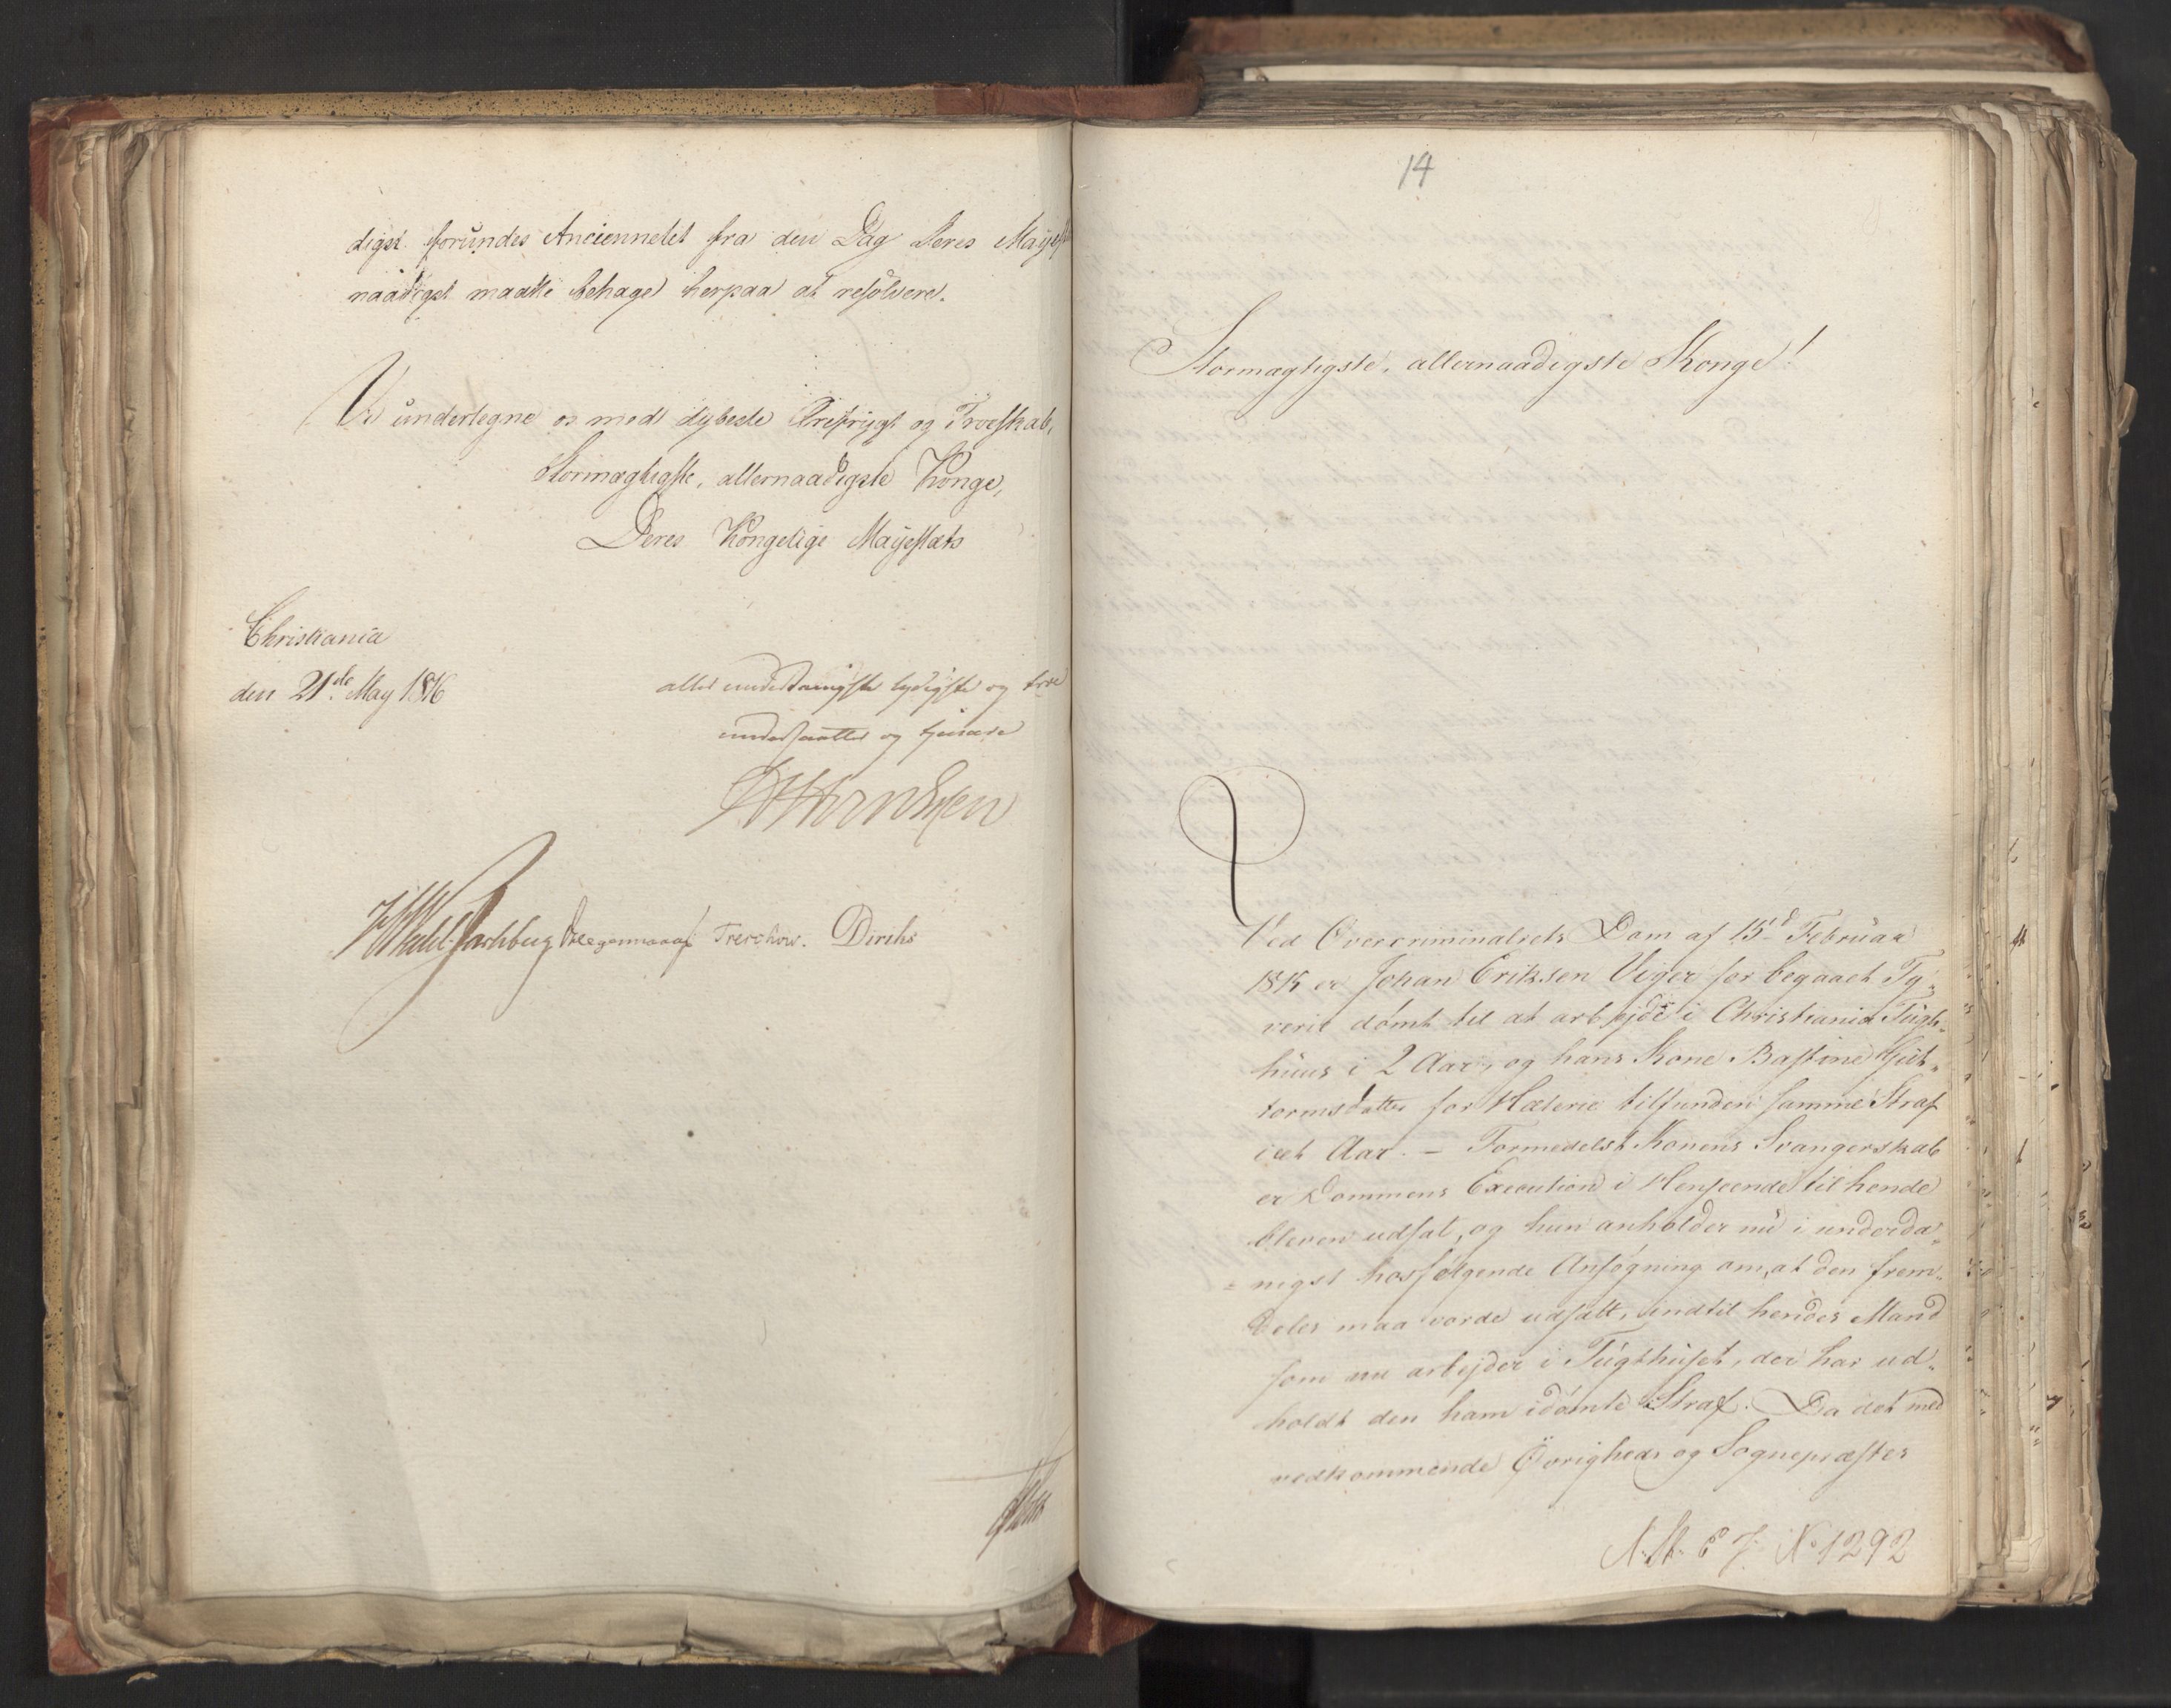 digst forundes Anciennetet fra den Dag Deres Mayest
naadigst maatte behage herpaa at resolvere.
Vi undertegne os med dybeste Ærefrygt og Troeskab,
Stormægtigste, allernaadigste Konge,
Deres Kongelige Mayestæts
Christiania
den 21de May 1816
allerunderdanigste lydigste og troe
undersaatter og tjenere
Wedel-Jarlsberg Hegermann Treschow. Diriks
14
Stormægtigste, allernaadigste Konge!
Ved Overcriminalrets Dom af 15d Februar
1815 er Johan Eriksen Viger for begaaet Ty-
verie dömt til at arbejde i Christiania Tugt-
huus i 2 Aar, og hans Kone Bastine Gut-
tormsdatter for Hæleri tilfunden samme Straf
i et Aar. – Formedelst Konens Svangerskab
er Dommens Execution i Henseende til hende
bleven udsat, og hun anholder nu i underda-
nigst hosfølgende Ansøgning om, at den frem-
deles maa vorde udsatt, indtil hendes Mand
som nu arbejder i Tugthuset, der har ud-
holdt den ham idömte Straf. Da det med
vedkommende Øvrigheds og Sognepræstes
N. St. E J. No 1292